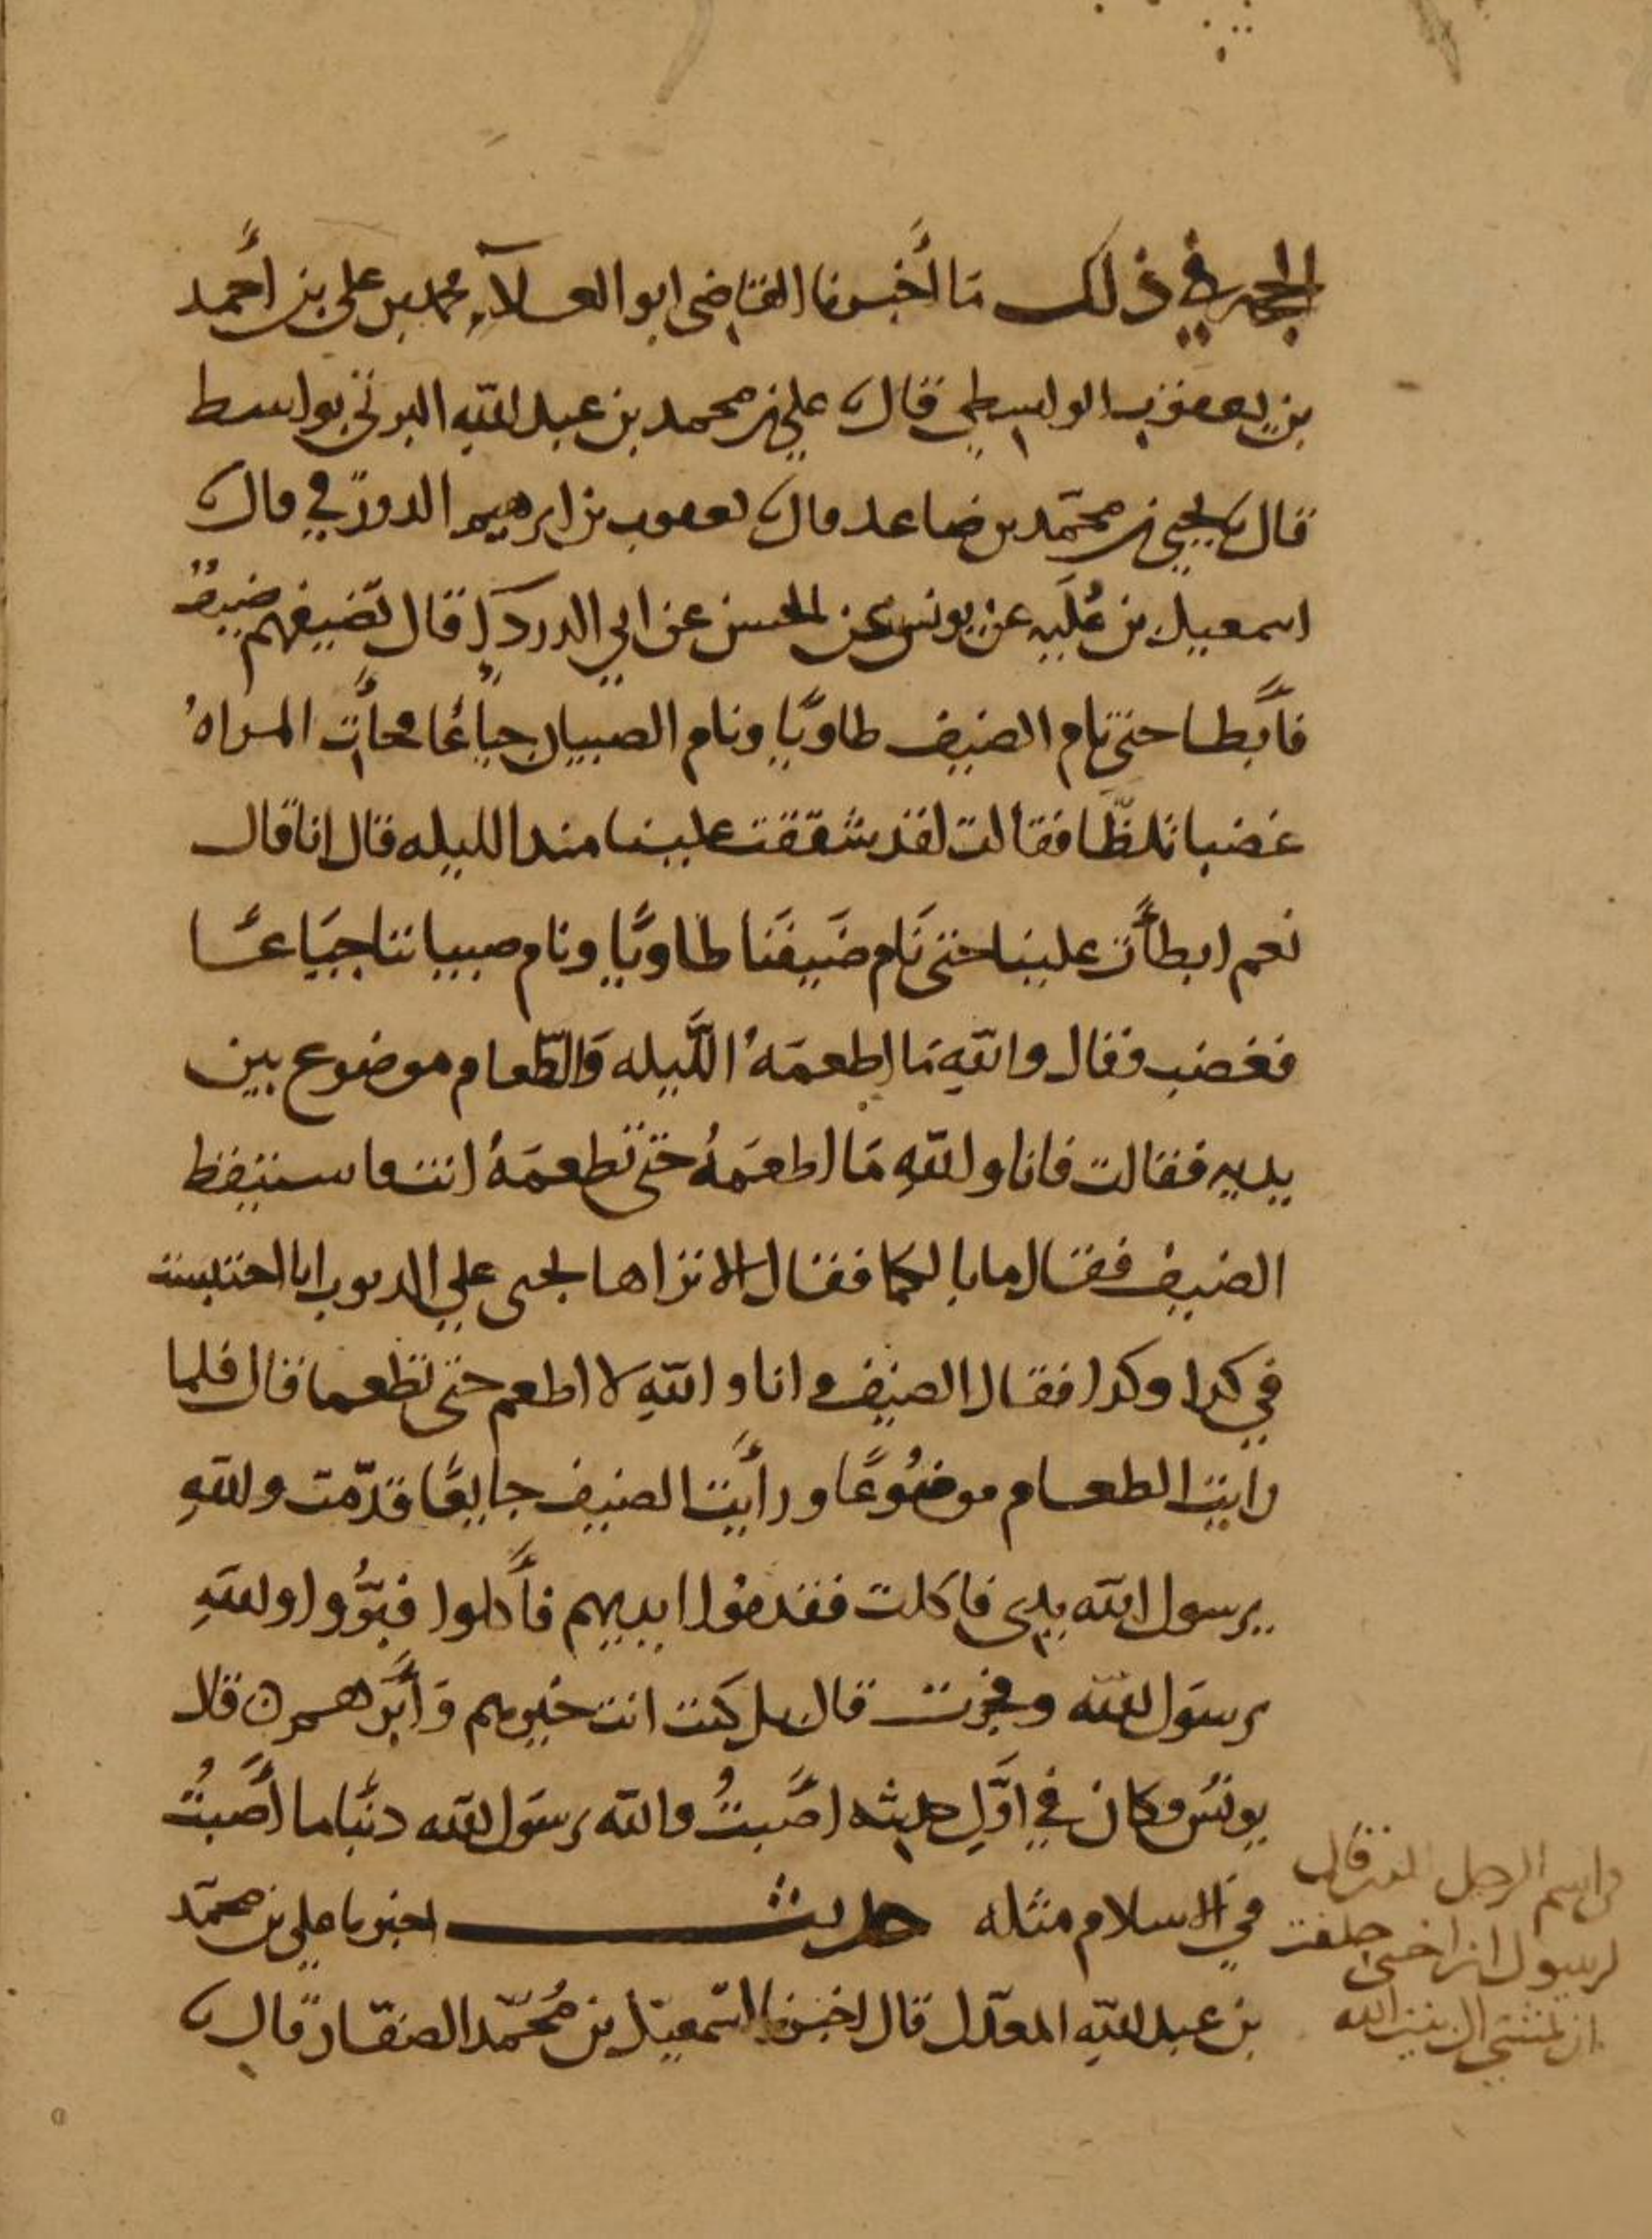 الحجه في ذلك ما أخبرنا القاضي ابو العلآء محمد بن علي بن أحمد
بن يعقوب الواسطي قال علي بن محمد بن عبد الله البرني بواسط
قال يحيى بن محمّد بن صاعد قال يعقوب بن ابرهيم الدورقي قال
اسمعيل بن عُلَيه عن يونس عن الحسن عن ابي الدردآء قال تضيفهم ضيفٌ
فأبطا حتى نام الضيف طاويًا ونام الصبيان جياعًا فجأت المراهُ
غضبا تلظّا فقالت لقد شققت علينا منذ الليله قال انا قال
نعم ابطأت علينا حتى نَام ضَيفنَا طاويًا ونام صبياننا جيَاعًا
فغضب فقال والله مَا اطعمَهُ اللَّيله وَالطّعام موضوع بين
يديه فقالت فانا والله مَا اطعَمَهُ حتّى تطعمَهُ انت فاستيقظ
الضيف فقال ما بالكما فقال الا تراها تجنى علي الذنوب انا احتبست
في كذا وكذا فقال الضيف وانا والله لا اطعم حتى تطعما قال فلما
رايت الطعام موضُوعًا ورأيت الضيف جايعًا قدّمت والله
يرسول الله يدى فاكلت فقدموا ايديهم فأكلوا فبرُّوا والله
يرسَول الله وفجرت قال بل كنت انت خيرهم وَأبَرّهم قال
يونسُ وكان في اوَّل حديثه اصَبتُ والله يرسَول الله ذنبًا ما أصَبتُ
في الاسلام مثله حديث اخبرنا علي بن محمّد
بن عبد الله المعدّل قال اخبرنا اسّمعيّل بن مُحمّد الصفّار قال
واسم الرجل